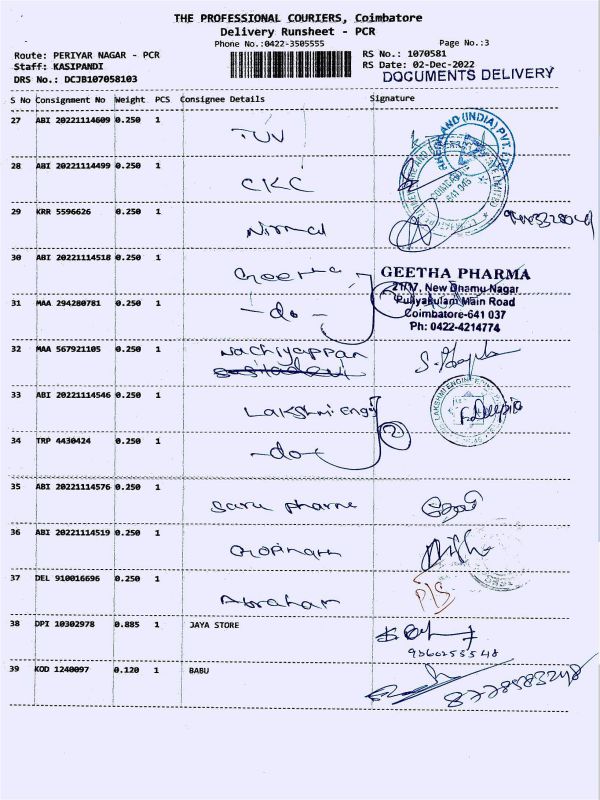 THE PROFESSIONAL COURIERS, Coimbatore
Delivery Runsheet - PCR
Phone No.:0422-3505555
Page No.:3
Route: PERIYAR NAGAR - PCR
RS No.: 1070581
Staff: KASIPANDI
RS Date: 02-Dec-2022
DRS No.: DCJB107058103
DOCUMENTS DELIVERY
S No Consignment No Weight PCS Consignee Details Signature
27 ABI 20221114609 0.250 1 TUV
28 ABI 20221114499 0.250 1 CKC
29 KRR 5596626 0.250 1 Nirmal
30 ABI 20221114518 0.250 1 Geetha
GEETHA PHARMA
21/17, New Dhamu Nagar
Puliyakulam Main Road
Coimbatore-641 037
Ph: 0422-4214774
31 MAA 294280781 0.250 1 -do-
32 MAA 567921105 0.250 1 Nachiyappan
33 ABI 20221114546 0.250 1 Lakshmi Engg
34 TRP 4430424 0.250 1 -do- 2
35 ABI 20221114576 0.250 1 Saru Pharma
36 ABI 20221114519 0.250 1 Gopinath
37 DEL 910016696 0.250 1 Abraham
38 DPI 10302978 0.885 1 JAYA STORE
9360253548
39 KOD 1240097 0.120 1 BABU
8778583248